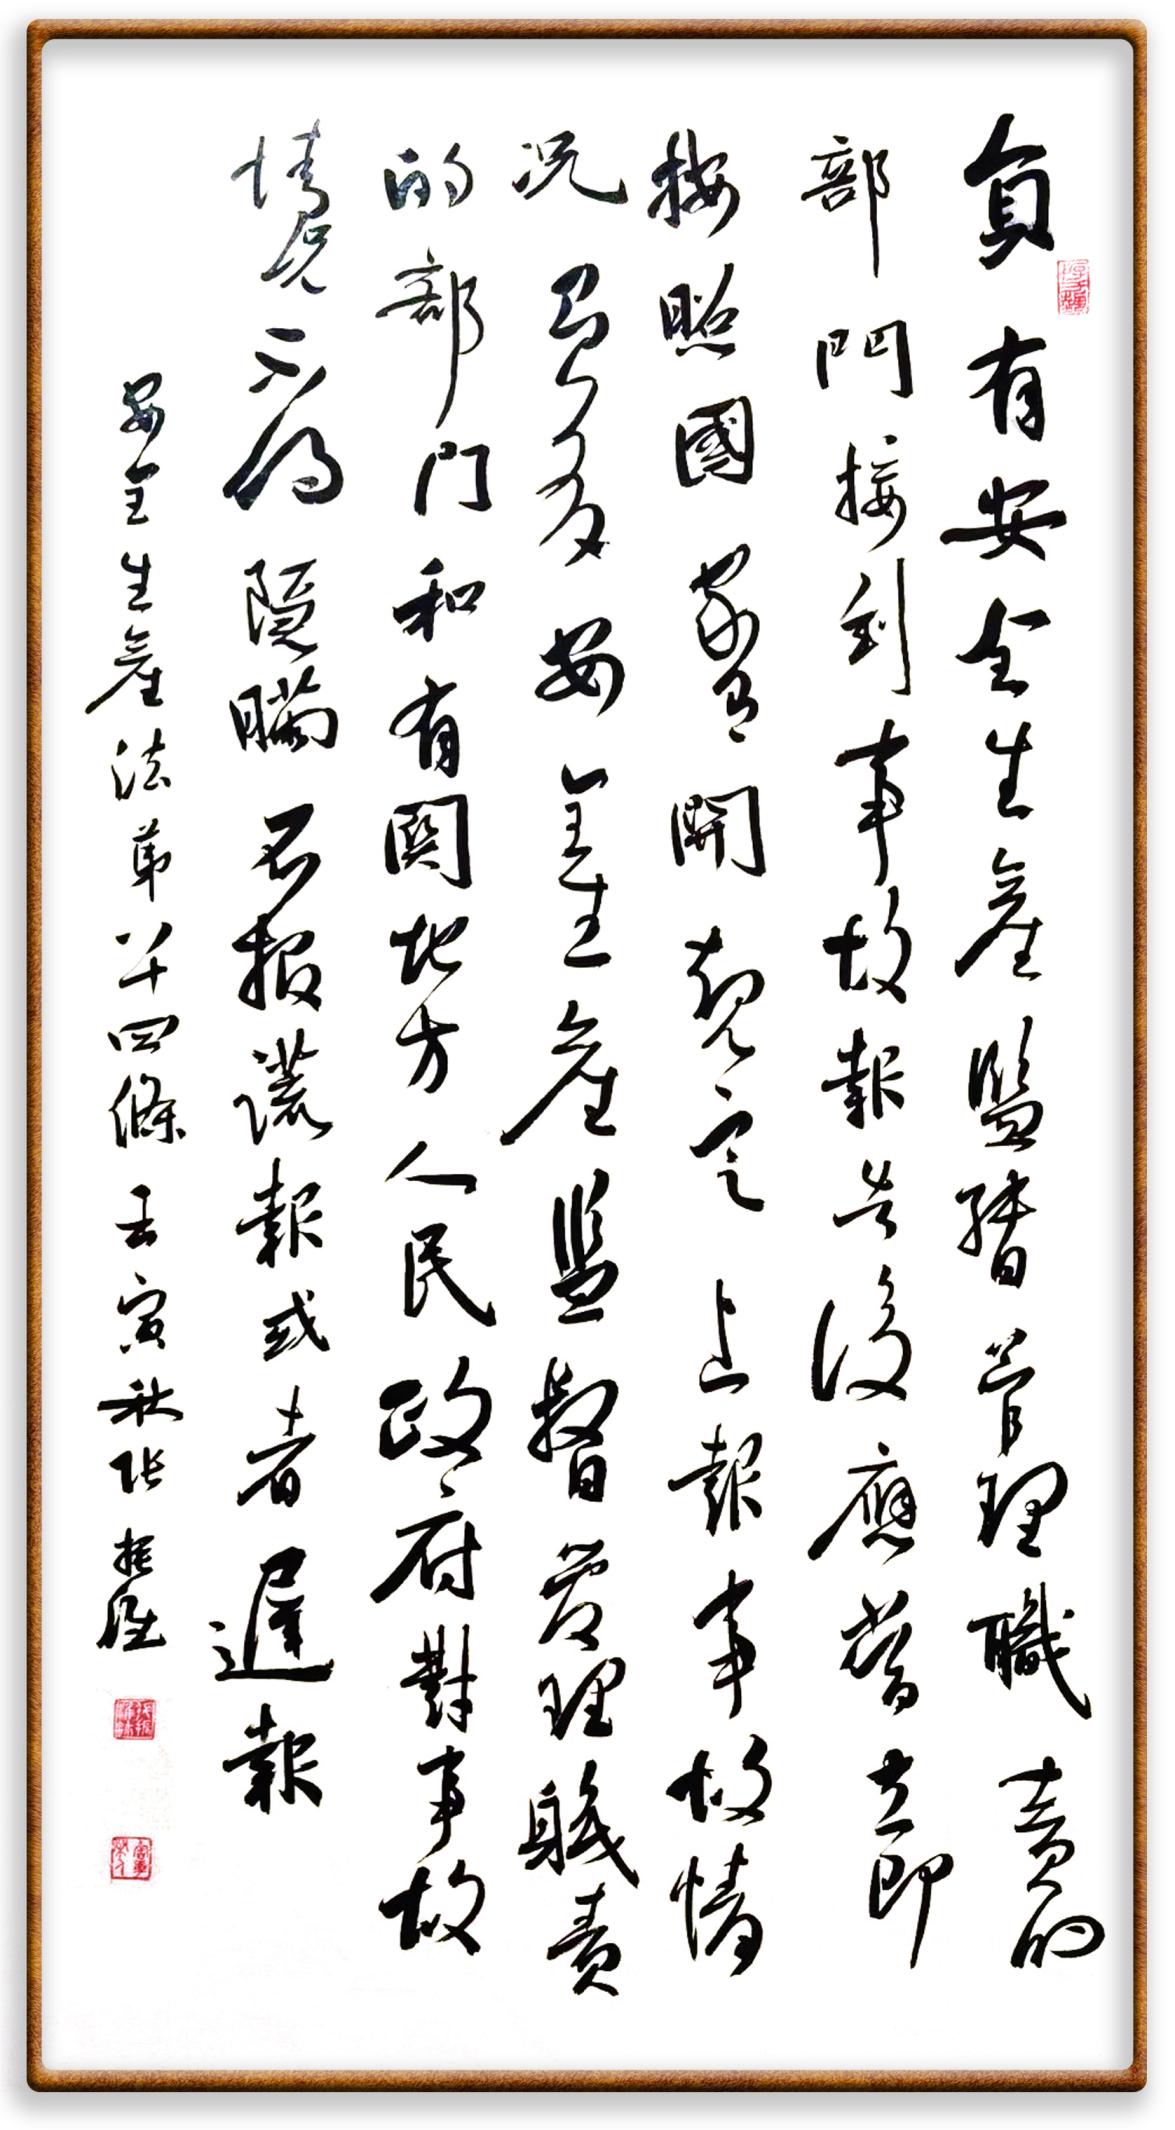 負有安全生產監督管理職責的
部門接到事故報告後應當立即
按照國家有關規定上報事故情
况負有安全生產監督管理職責
的部门和有関地方人民政府對事故
情况不得隐瞞不报謊報或者遲報
安全生產法第八十四條壬寅秋張振